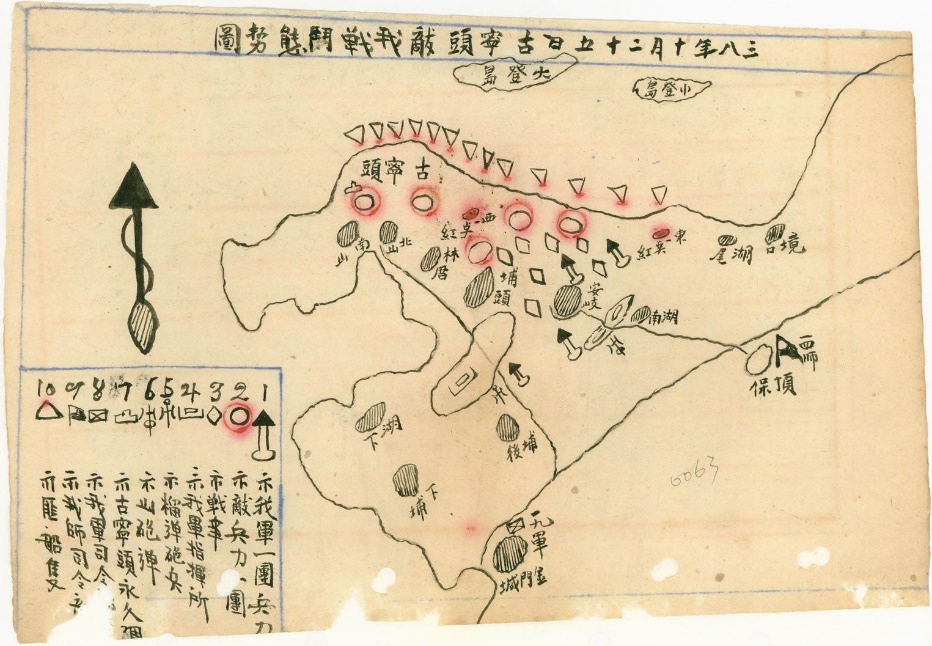 三八年十月二十五日古寧頭敵我戰鬥態勢圖
大登島
小登島
古寧頭
南山
北山
林厝
西一点紅
埔頭
安岐
東一点紅
湖尾
官境
湖南
一一八師
頂保
湖下
埔下
後埔
一九軍
金門城
1 示我軍一團兵力
2 示敵兵力一團
3 示戰車
4 示我軍指揮所
5 示榴弹砲兵
6 示山砲弹
7 示古寧頭永久
8 示我軍司令
9 示我師司令
10 示匪船隻
0063